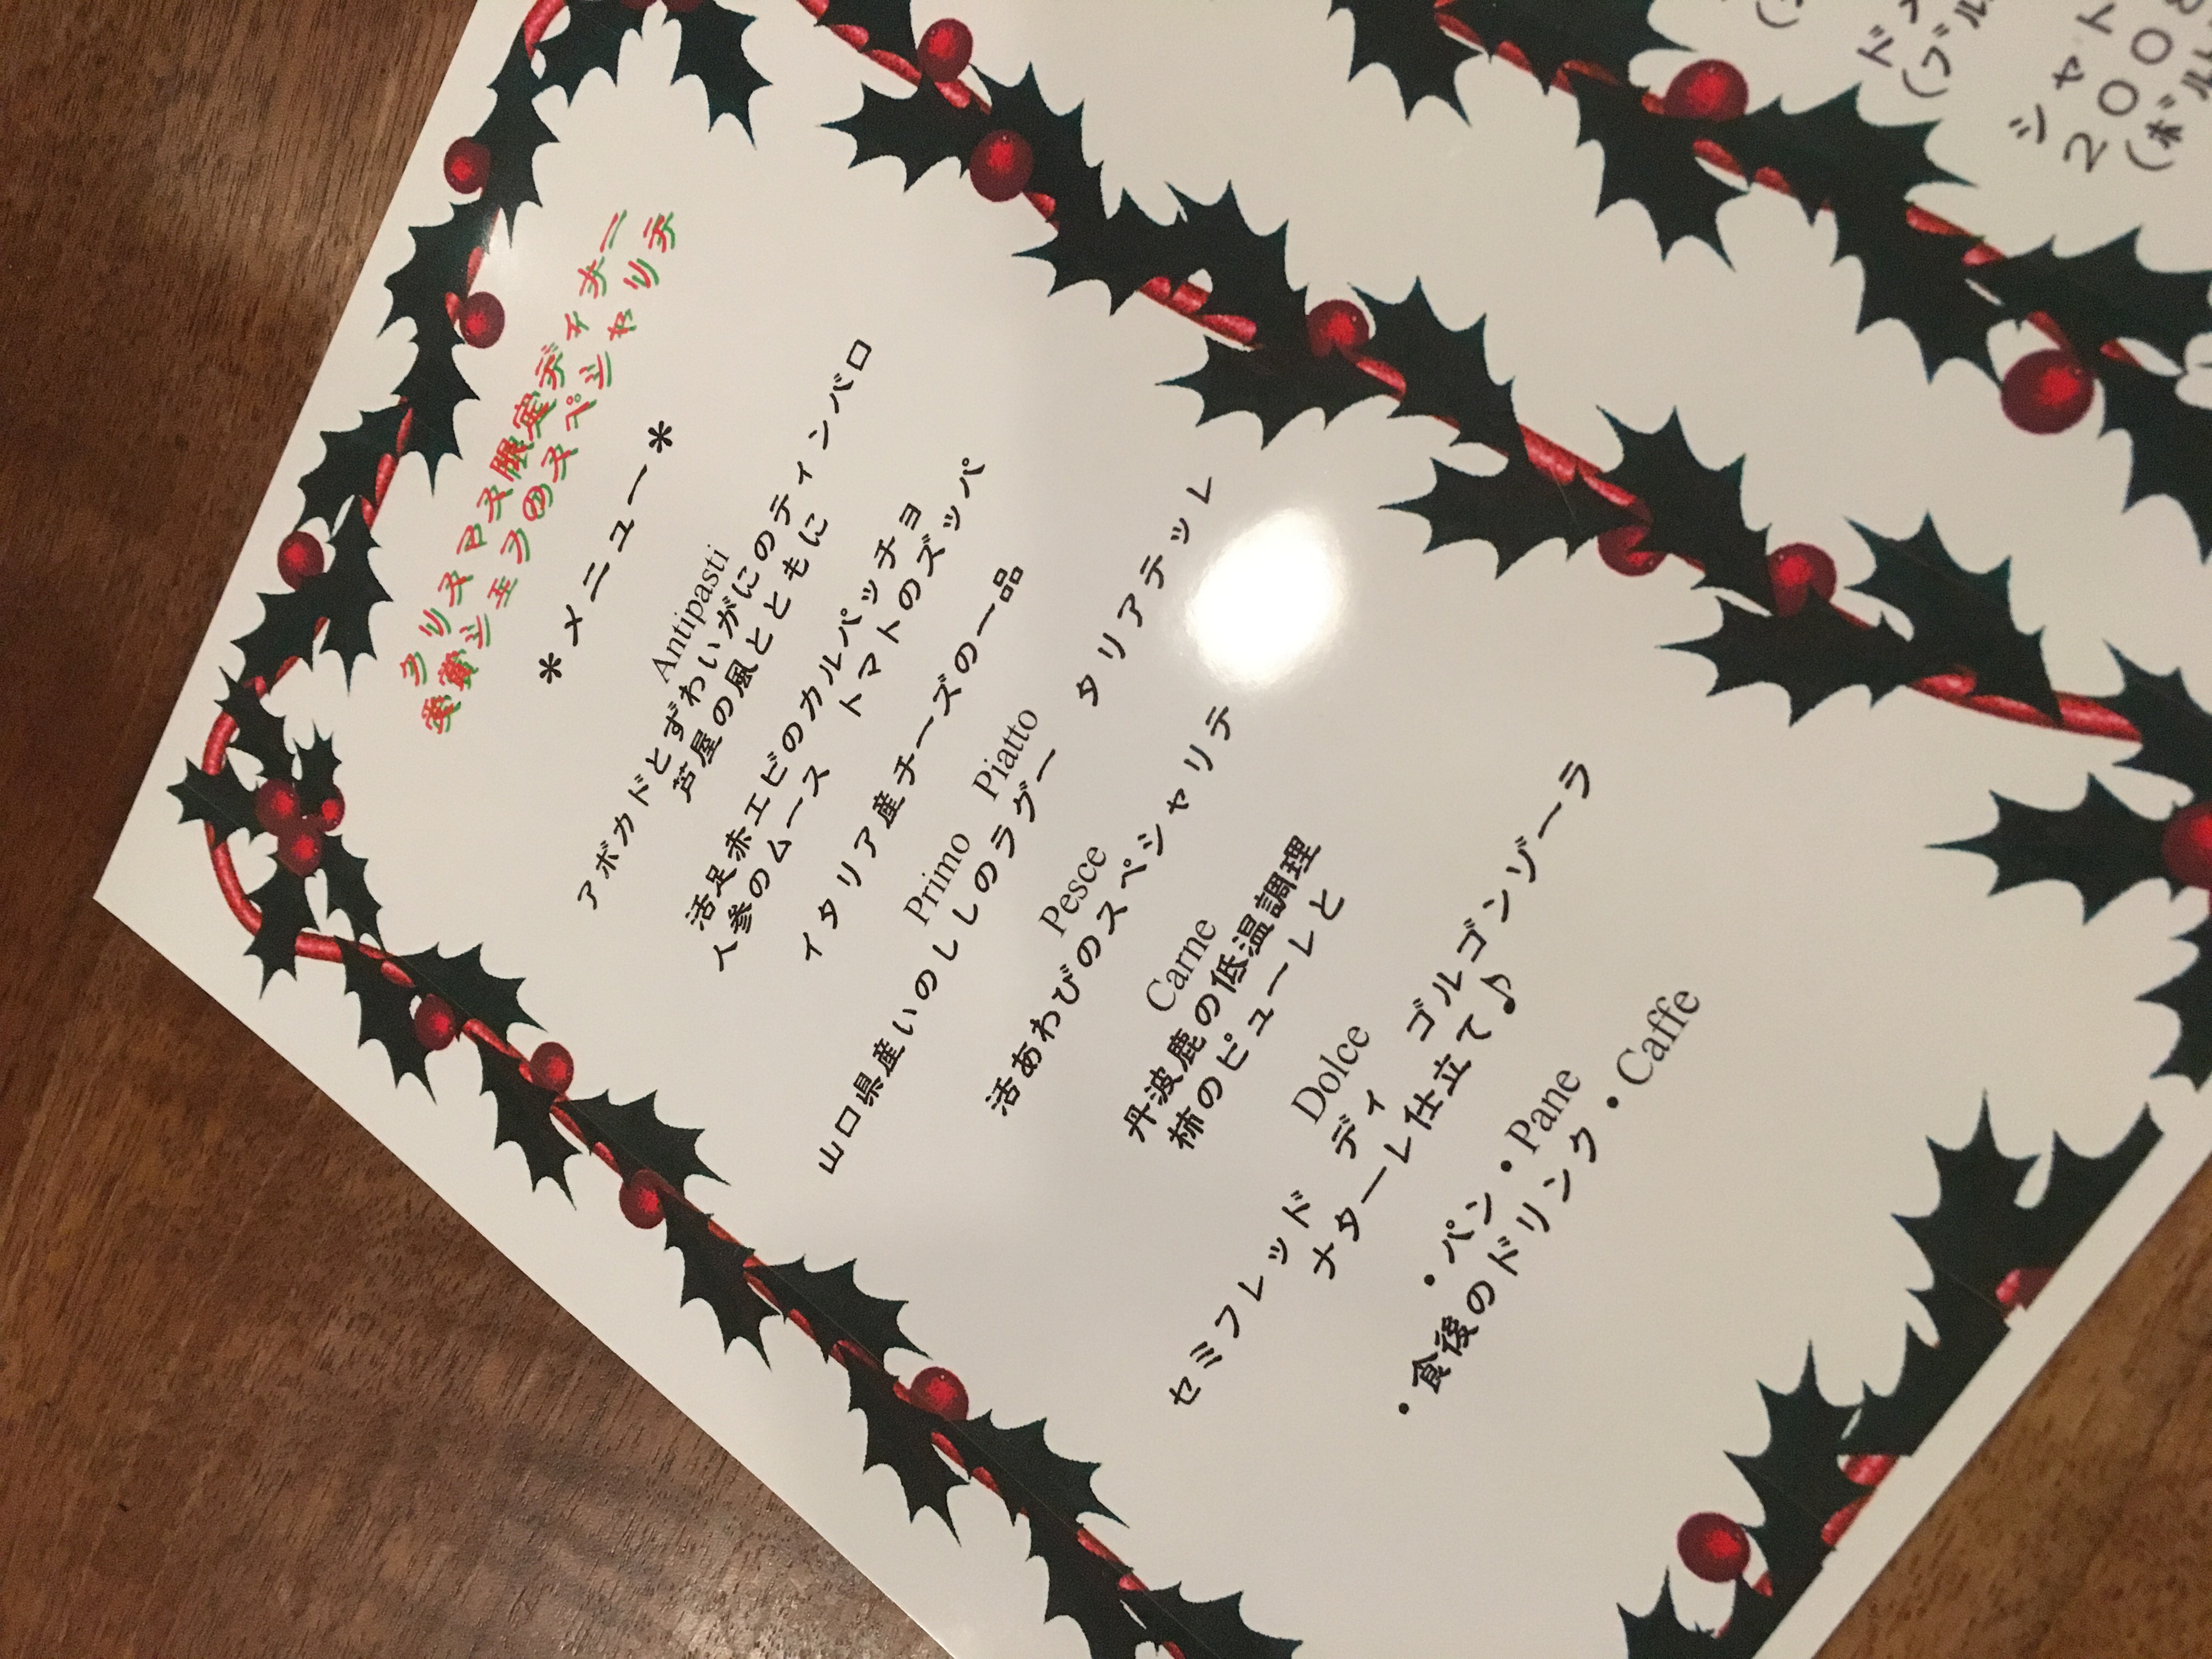 クリスマス限定ディナー
受賞シェフのスペシャリテ
*メニュー*
Antipasti
アボカドとずわいがにのティンバロ
芦屋の風とともに
活足赤エビのカルパッチョ
人参のムース トマトのズッパ
イタリア産チーズの一品
Primo Piatto
山口県産いのししのラグー タリアテッレ
Pesce
活あわびのスペシャリテ
Carne
丹波鹿の低温調理
柿のピューレと
Dolce
セミフレッド ディ ゴルゴンゾーラ
ナターレ仕立て♪
・パン・Pane
・食後のドリンク・Caffe
シャト